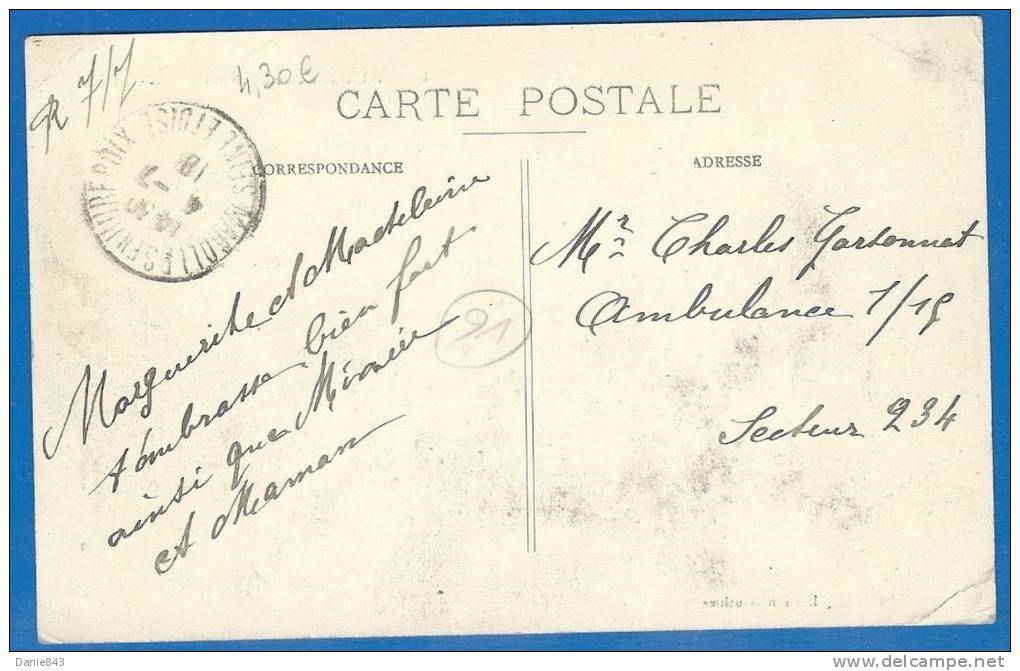 R 7/7
4,30€
CARTE POSTALE
CORRESPONDANCE
ADRESSE
MAROLLES EN HUREPOIX
SEINE ET OISE
18
Marguerite et Madeleine
t'embrasse bien fort
ainsi que
et Maman
91
Mr Charles
Ambulance 1/19
Secteur 234
Danie843
www.delcampe.net